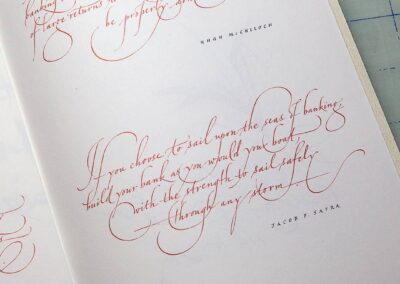 banking
of large returns to
be properly
HUGH McCULLOCH
If you choose to sail upon the seas of banking,
build your bank as you would your boat,
with the strength to sail safely
through any storm.
JACOB P. SAFRA